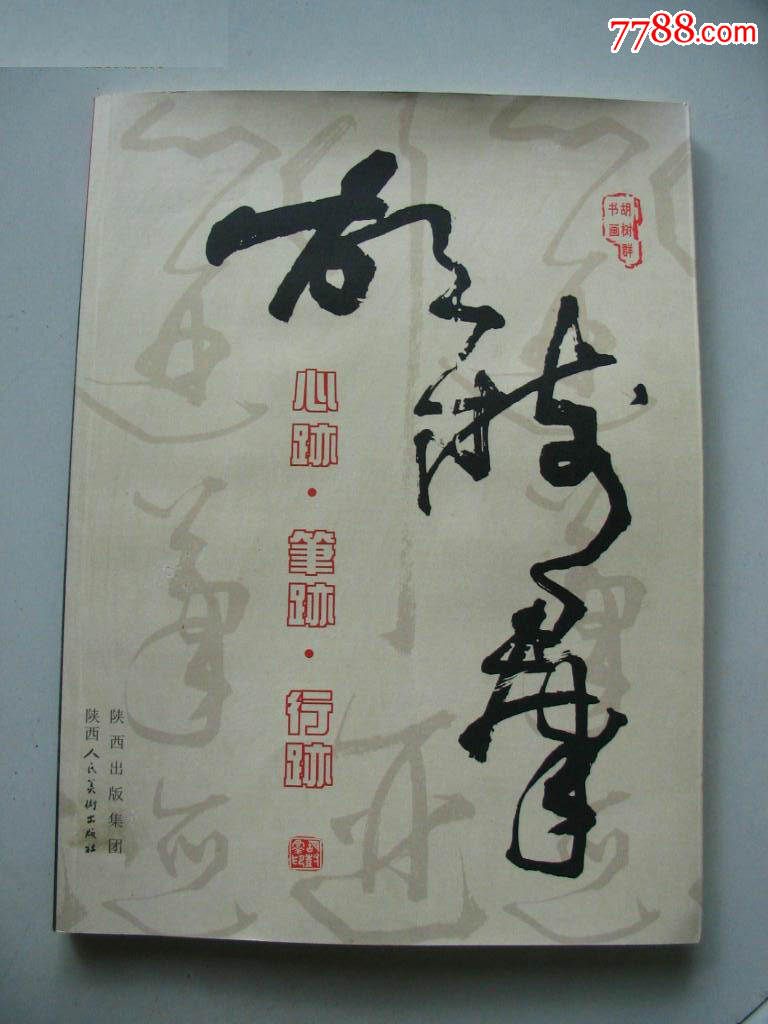 7788.com
胡树群
书画
胡树群
心跡·筆跡·行跡
陕西出版集团
陕西人民美術出版社